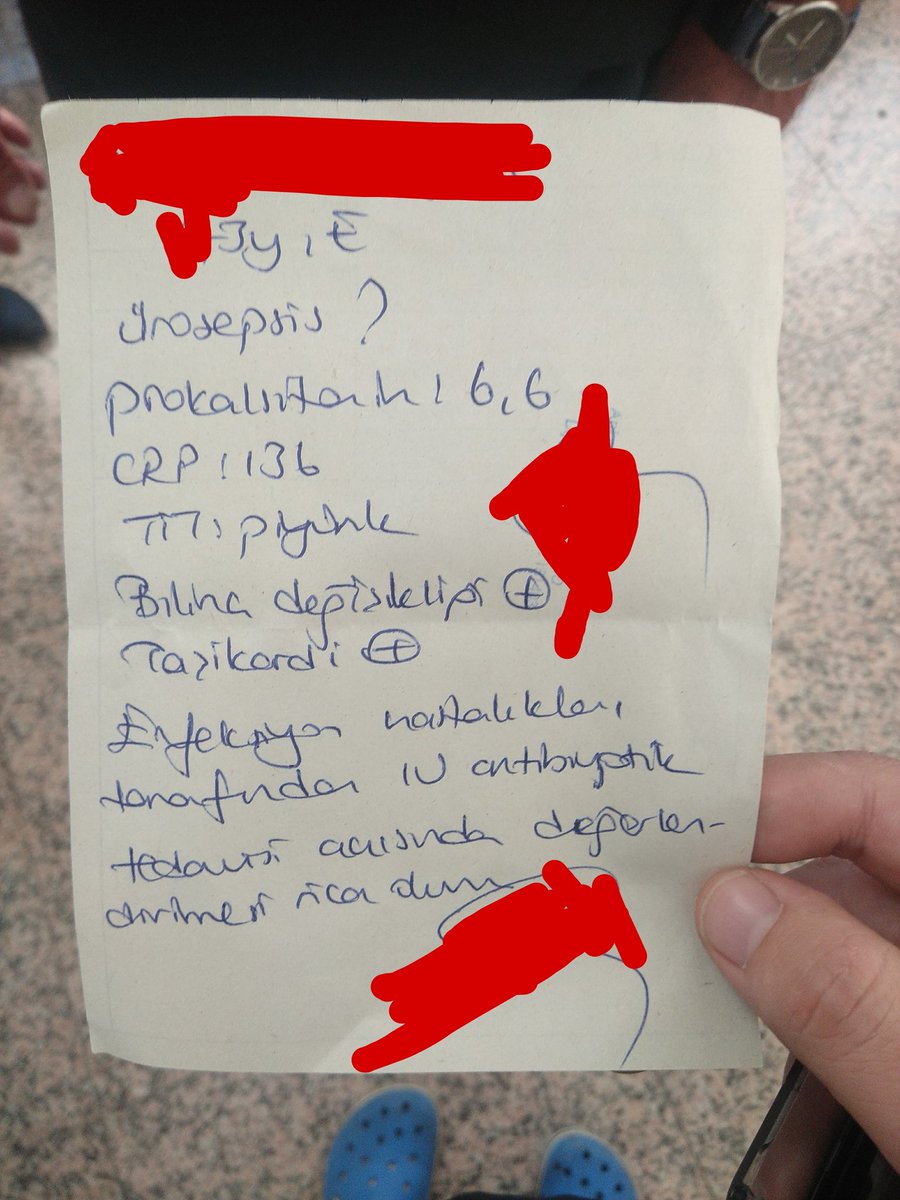 3y, E
Ürosepsis ?
prokalsitonin: 6,6
CRP: 136
TİT: piyürik
Bilinç değişikliği ⊕
Taşikardi ⊕
Enfeksiyon hastalıkları
tarafından IV antibiyotik
tedavisi açısında değerlen-
dirilmesi rica olunur